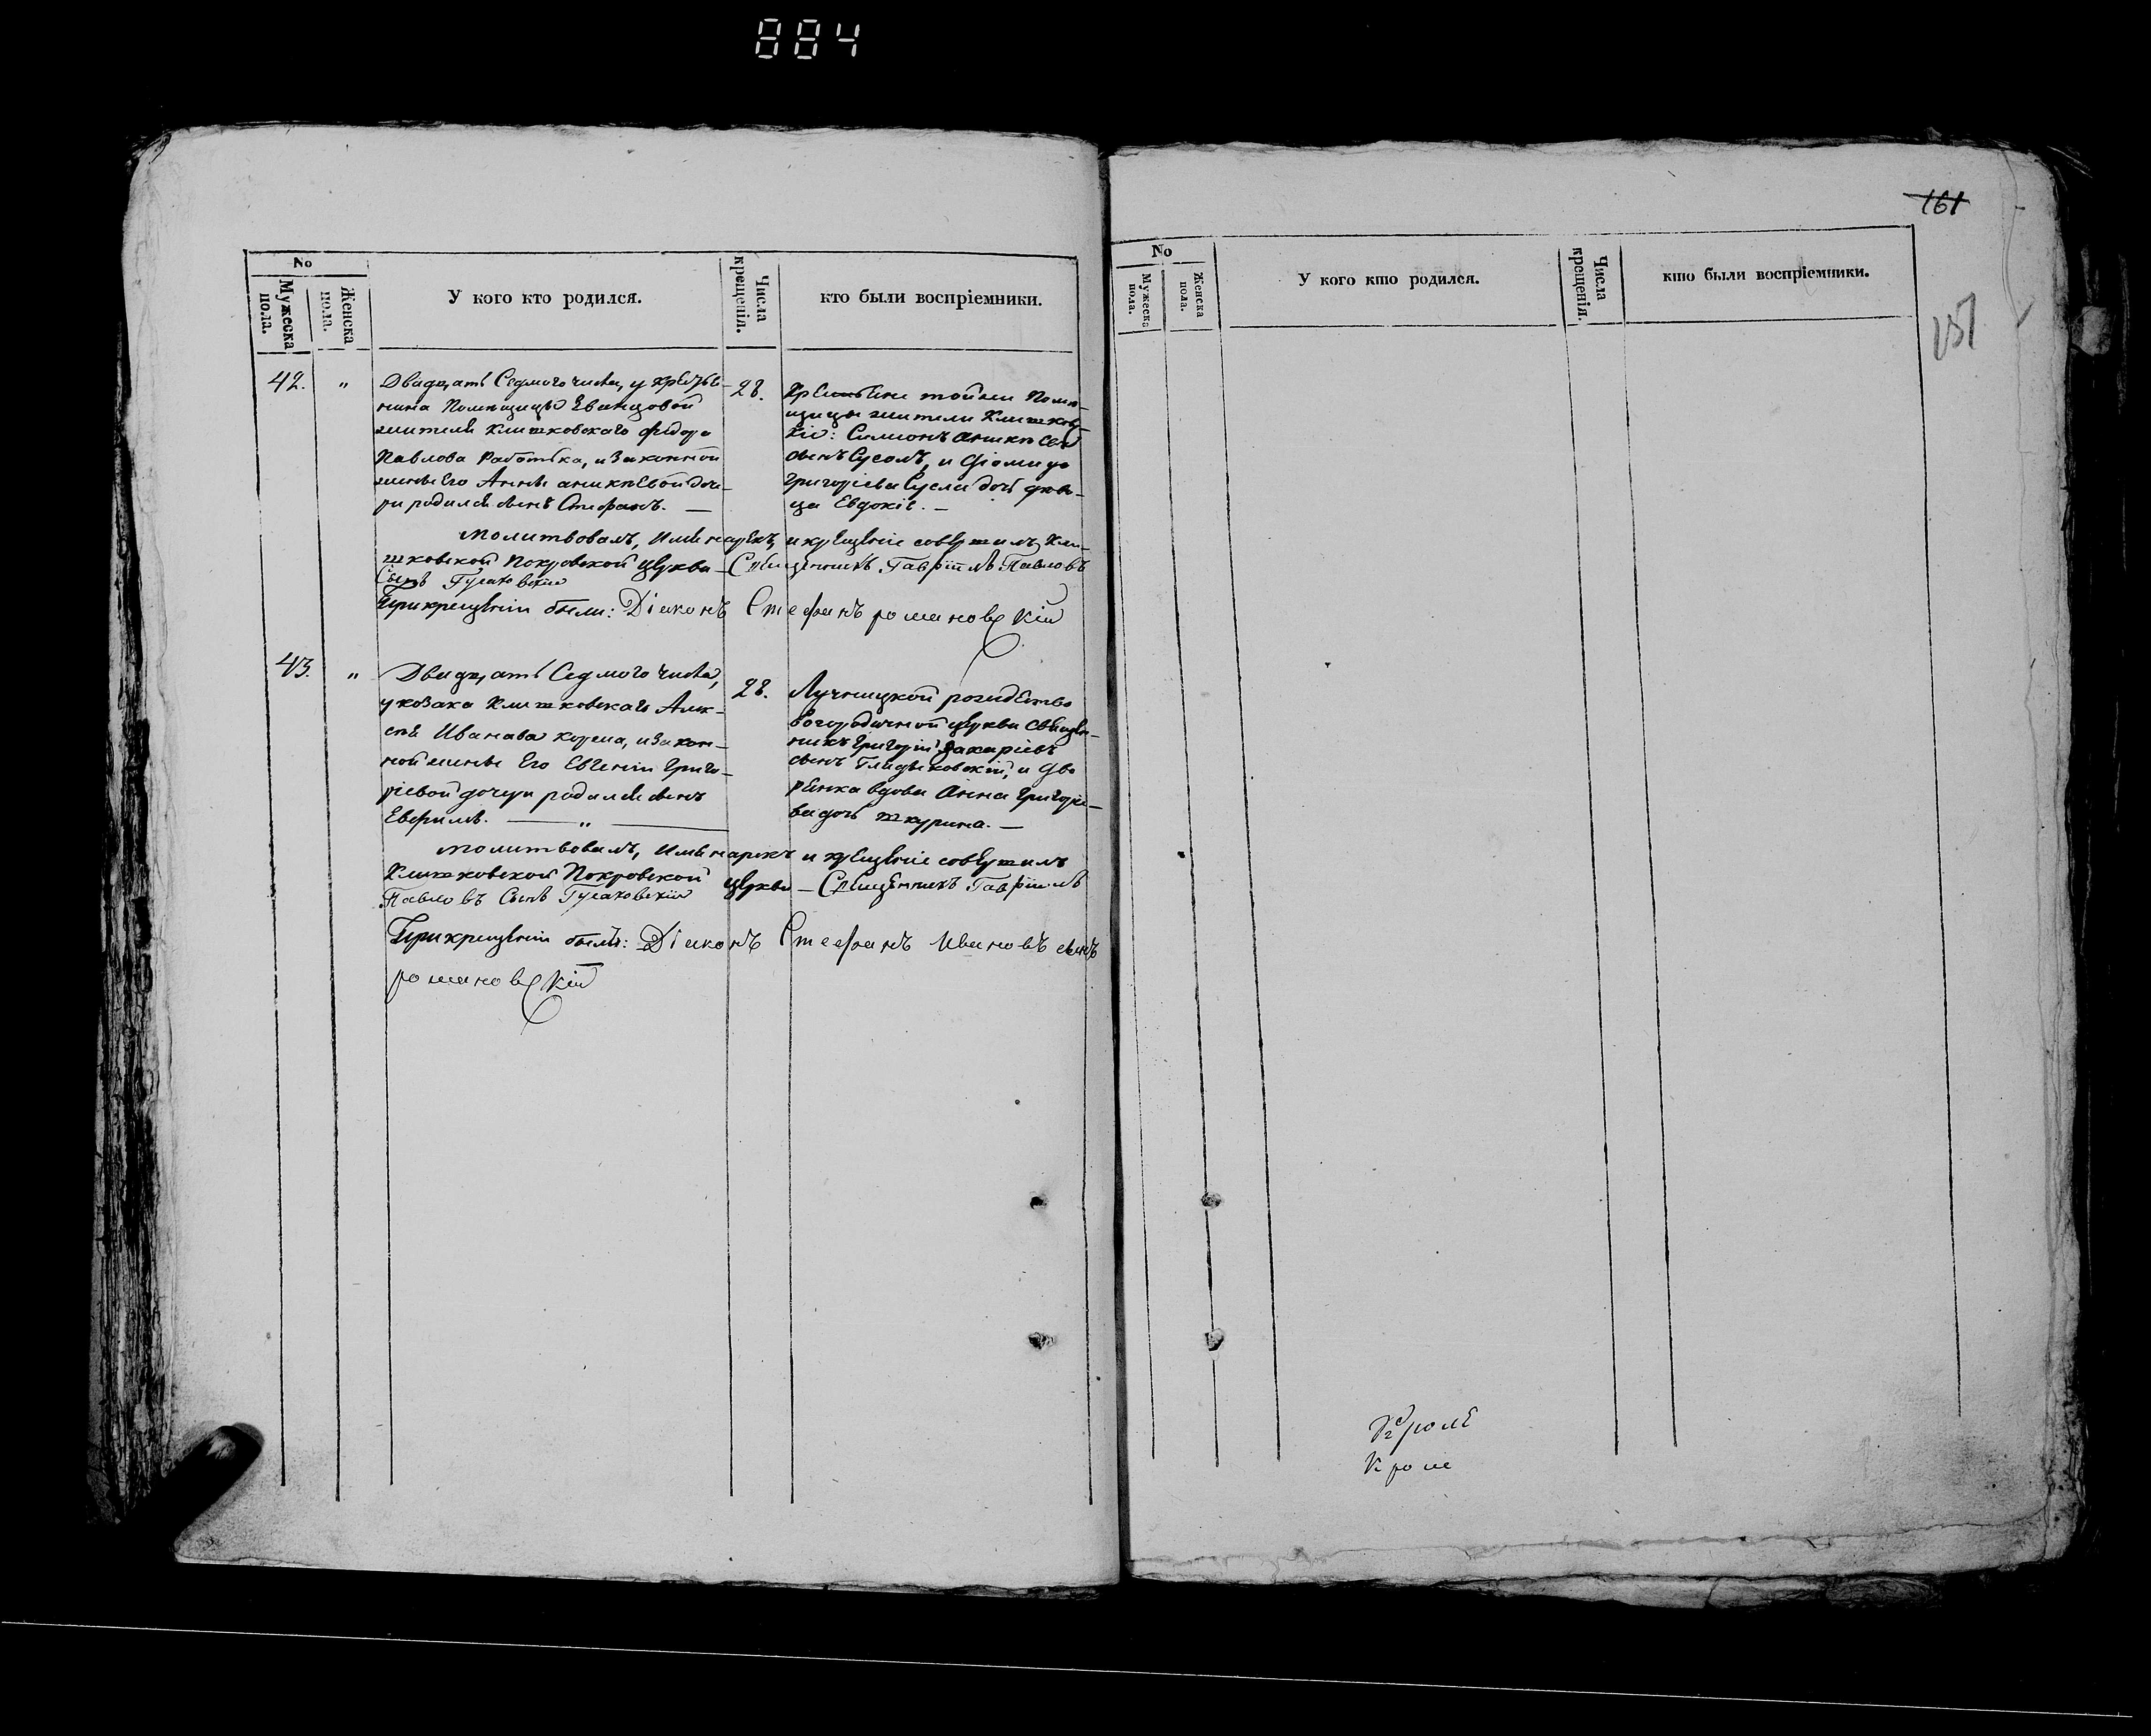 884
161
157
No
Мужеска пола.
Женска пола.
У кого кто родился.
Числа крещенія.
кто были воспріемники.
42. „ Двадцать Седмого числа, у крестья-
нина Помещицы Иванцовой
жителя Клишковского Федора
Павлова Работька, и законной
жены его Анны
ри родился сынъ Стефанъ. —
28.
Крестьяне тойже Поме-
щицы жители Клишков-
кіе: Симионъ
сынъ Сусолъ, и
Григоріева Сусла дочь деви-
ца Евдокіе. —
молитвовалъ, имя нарекъ, и крещеніе совершилъ Кли-
шковской Покровской церкви — Священникъ Гавріилъ Павловъ
Сынъ
При крещеніи были: Діаконъ Стефанъ романовскій
43. „ Двадцать Седмого числа,
у козака Клишковского Алек-
сея Иванава корма, и закон-
ной жены Его Евгеніи Григо-
ріевой дочери родился сынъ
Евфимъ. — „ —
28.
рождество
богородичной церкви священ-
никъ Григорій Захаріевъ
сынъ и дво
рянка вдова Анна Григорие-
ва дочь шкурина. —
молитвовалъ, имя нарекъ и крещеніе совершилъ
Клишковской Покровской церкви — Священникъ Гавріилъ
Павловъ Сынъ
При крещеніи былъ: Діаконъ Стефанъ Ивановъ сынъ
романовскій
No
Мужеска пола.
Женска пола.
У кого кто родился.
Числа крещенія.
кто были воспріемники.
Кроме